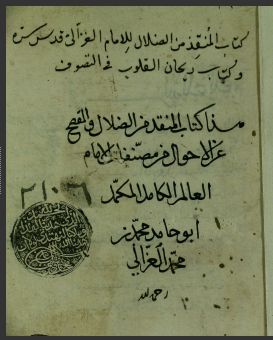 كتاب المنقذ من الضلال للامام الغزالى قدس سره
وكتاب ريحان القلوب فى التصوف
هذا كتاب المنقذ من الضلال والمفصح
عن الاحوال من مصنفات الامام
العالم الكامل المكمل
٢١٠٦
ابو حامد محمد بن
محمد الغزالي
رحمه الله